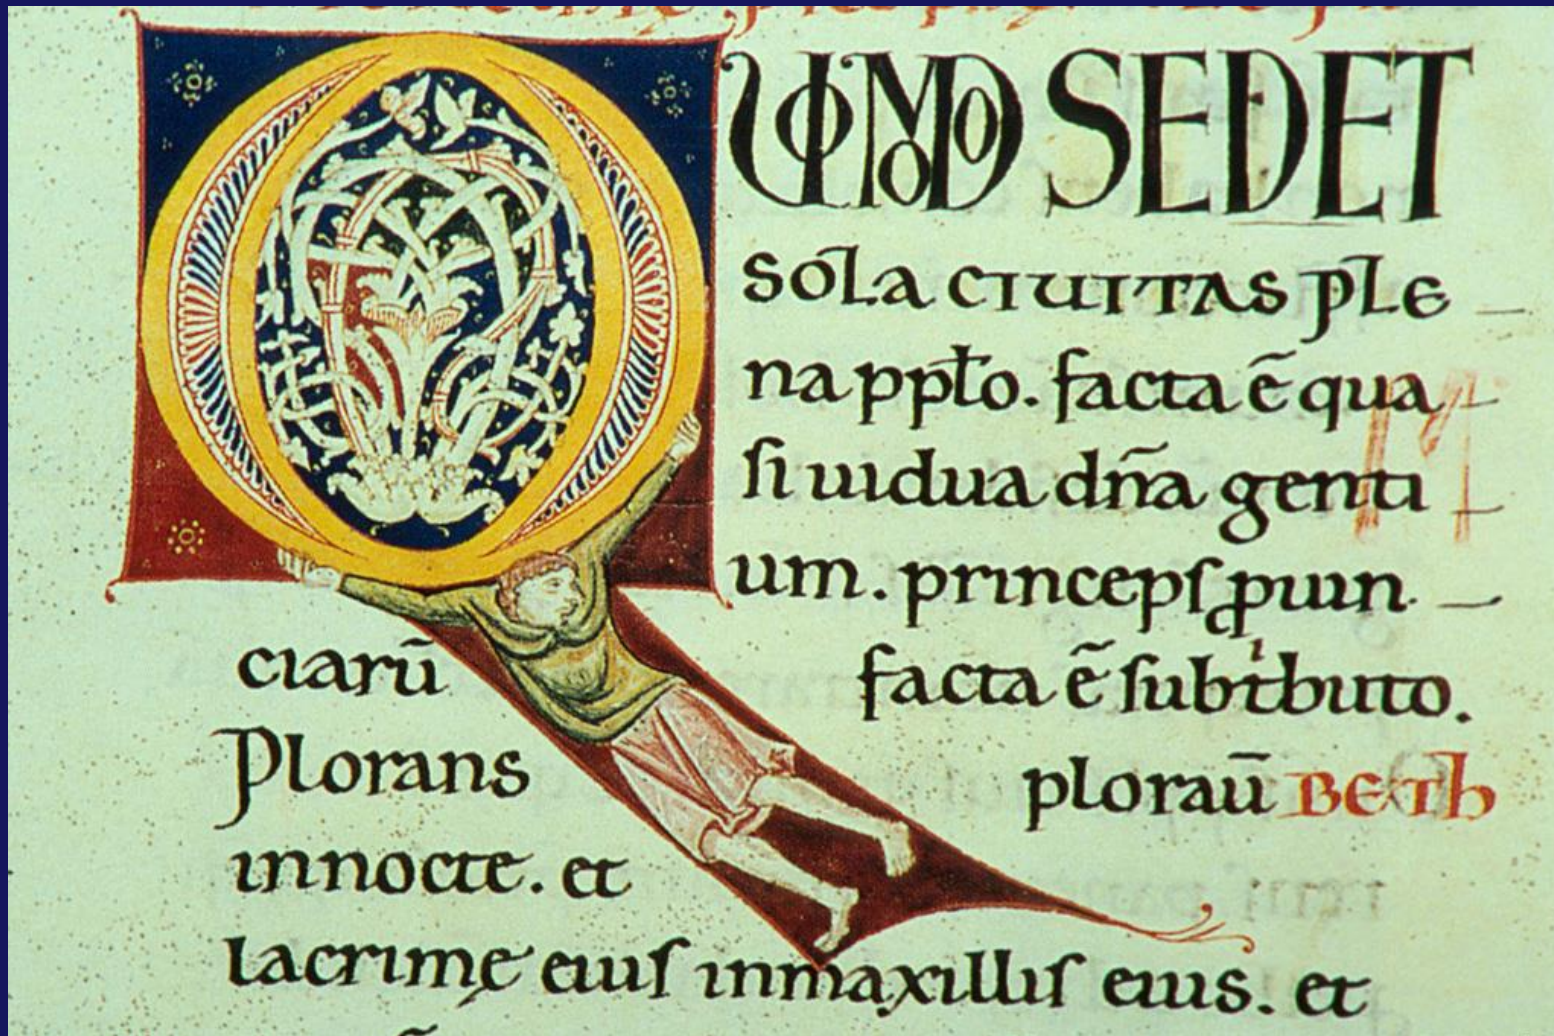 QUOMODO SEDET
sola ciuitas ple
na pp̄lo. facta ē qua
si uidua dn̄a genti
um. princeps ꝓuin
ciarū facta ē sub tͥbuto.
Plorans plorau̅ BETH
in nocte. et
lacrimę eius in maxillis eius. et